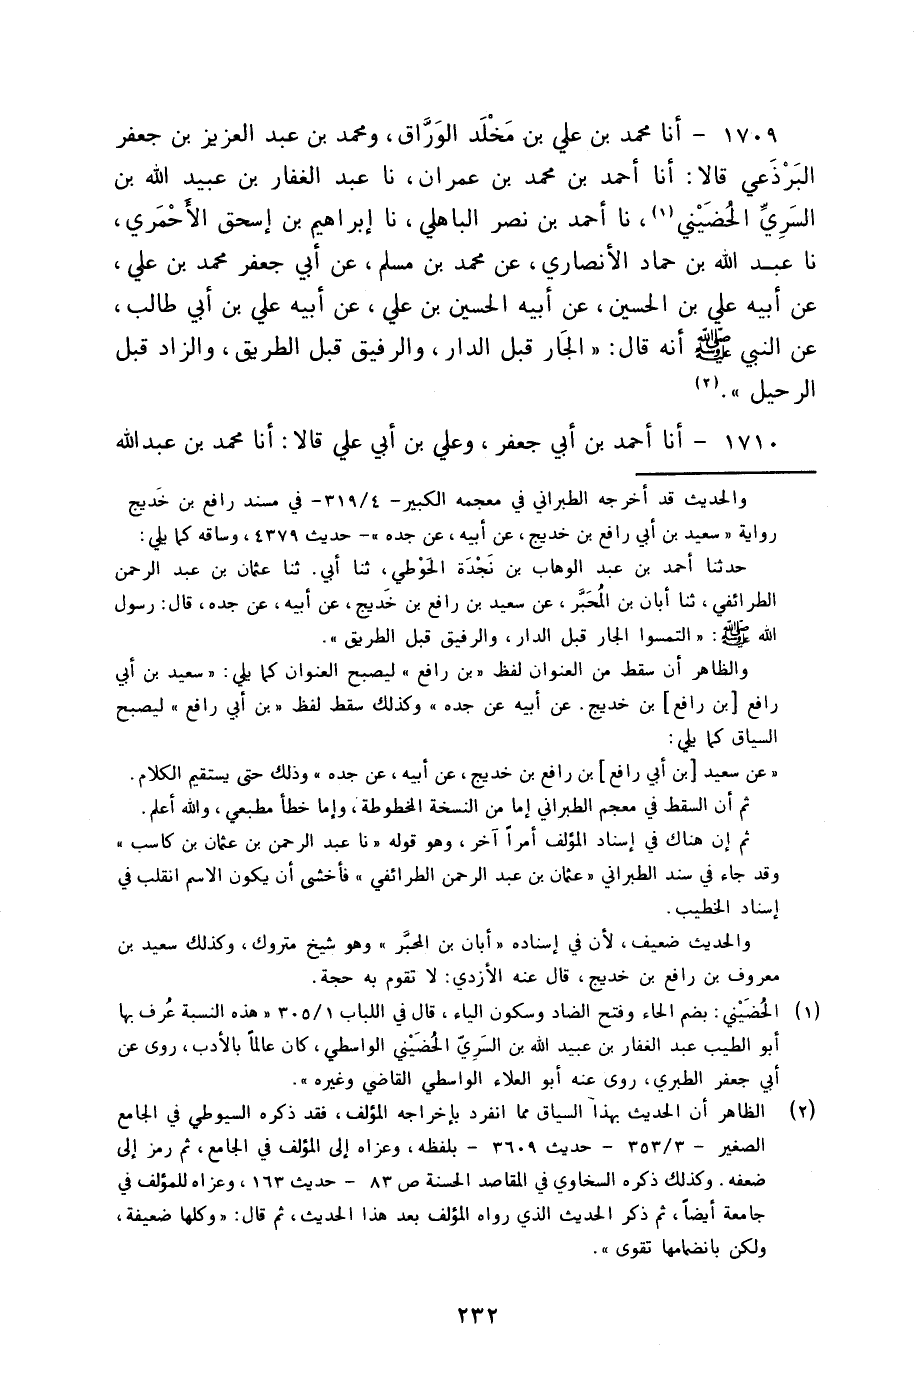 ١٧٠٩ - أنا محمد بن علي بن مَخْلَد الوَرَّاق، ومحمد بن عبد العزيز بن جعفر
البَرْذَعي قالا: أنا أحمد بن محمد بن عمران، نا عبد الغفار بن عبيد الله بن
السَرِيِّ الحُضَيْني(١)، نا أحمد بن نصر الباهلي، نا إبراهيم بن إسحق الأَحْمَري،
نا عبد الله بن حماد الأنصاري، عن محمد بن مسلم، عن أبي جعفر محمد بن علي،
عن أبيه علي بن الحسين، عن أبيه الحسين بن علي، عن أبيه علي بن أبي طالب،
عن النبي ﷺ أنه قال: « الجَار قبل الدار، والرفيق قبل الطريق، والزاد قبل
الرحيل ».(٢)
١٧١٠ - أنا أحمد بن أبي جعفر، وعلي بن أبي علي قالا: أنا محمد بن عبدالله
والحديث قد أخرجه الطبراني في معجمه الكبير- ٣١٩/٤- في مسند رافع بن خَديج
رواية « سعيد بن أبي رافع بن خديج، عن أبيه، عن جده »- حديث ٤٣٧٩، وساقه كما يلي:
حدثنا أحمد بن عبد الوهاب بن نَجْدَة الحَوْطي، ثنا أبي. ثنا عثمان بن عبد الرحمن
الطرائفي، ثنا أبان بن المُحَبَّر، عن سعيد بن رافع بن خَديج، عن أبيه، عن جده، قال: رسول
الله ﷺ: « التمسوا الجار قبل الدار، والرفيق قبل الطريق ».
والظاهر أن سقط من العنوان لفظ « بن رافع » ليصبح العنوان كما يلي: « سعيد بن أبي
رافع [بن رافع] بن خديج. عن أبيه عن جده » وكذلك سقط لفظ « بن أبي رافع » ليصبح
السياق كما يلي:
« عن سعيد [بن أبي رافع] بن رافع بن خديج، عن أبيه، عن جده » وذلك حتى يستقيم الكلام.
ثم أن السقط في معجم الطبراني إما من النسخة المخطوطة، وإما خطأ مطبعي، والله أعلم.
ثم إن هناك في إسناد المؤلف أمراً آخر، وهو قوله « نا عبد الرحمن بن عثمان بن كاسب »
وقد جاء في سند الطبراني « عثمان بن عبد الرحمن الطرائفي » فأخشى أن يكون الاسم انقلب في
إسناد الخطيب.
والحديث ضعيف، لأن في إسناده « أبان بن المحبَّر » وهو شيخ متروك، وكذلك سعيد بن
معروف بن رافع بن خديج، قال عنه الأزدي: لا تقوم به حجة.
(١) الحُضَيْني: بضم الحاء وفتح الضاد وسكون الياء، قال في اللباب ٣٠٥/١ « هذه النسبة عُرف بها
أبو الطيب عبد الغفار بن عبيد الله بن السَرِيّ الحُضَيْني الواسطي، كان عالماً بالأدب، روى عن
أبي جعفر الطبري، روى عنه أبو العلاء الواسطي القاضي وغيره ».
(٢) الظاهر أن الحديث بهذا السياق مما انفرد بإخراجه المؤلف، فقد ذكره السيوطي في الجامع
الصغير - ٣٥٣/٣ - حديث ٣٦٠٩ - بلفظه، وعزاه إلى المؤلف في الجامع، ثم رمز إلى
ضعفه. وكذلك ذكره السخاوي في المقاصد الحسنة ص ٨٣ - حديث ١٦٣، وعزاه للمؤلف في
جامعة أيضاً، ثم ذكر الحديث الذي رواه المؤلف بعد هذا الحديث، ثم قال: « وكلها ضعيفة،
ولكن بانضمامها تقوى ».
٢٣٢